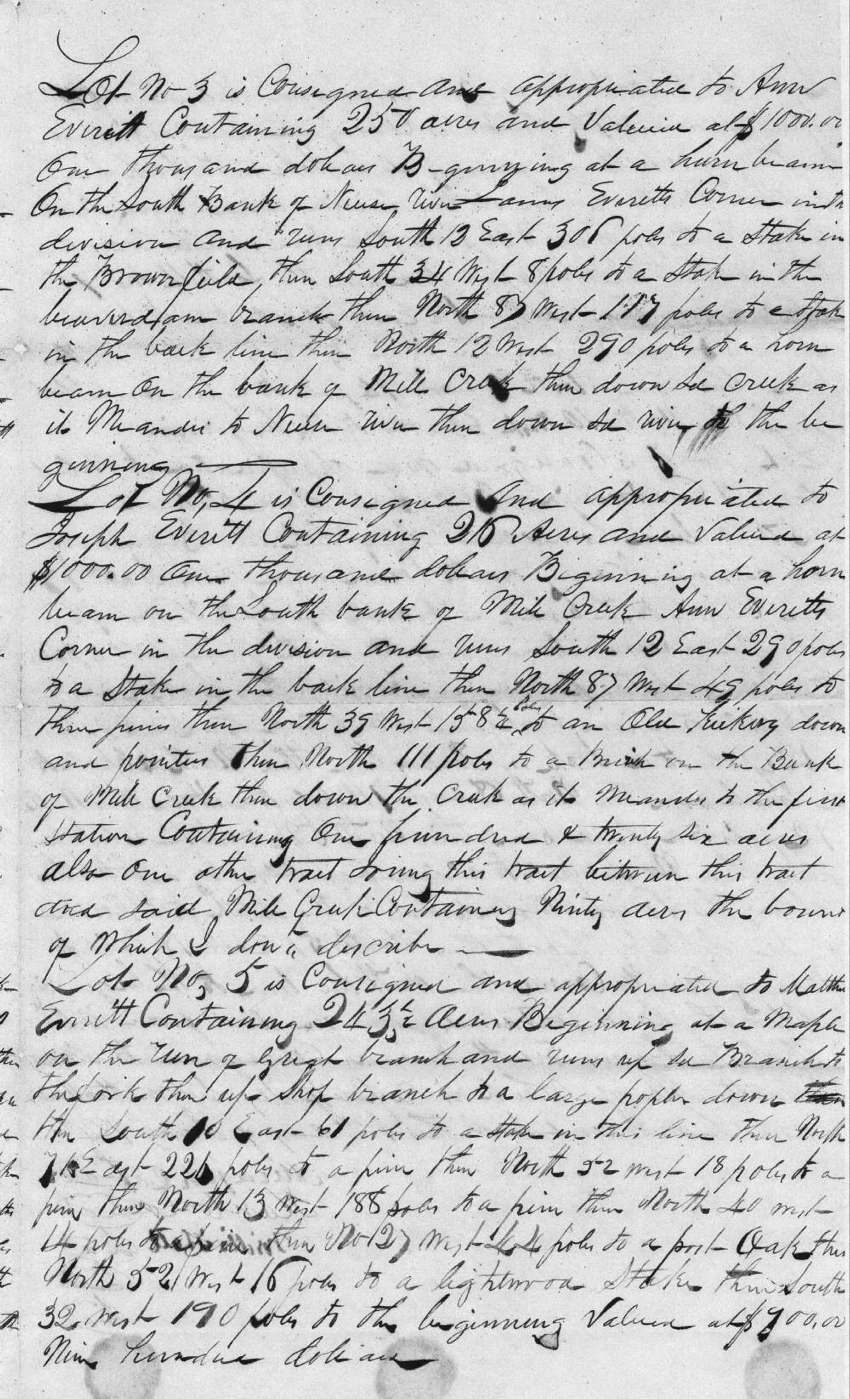 Lot No 3 is Consigned and appropriated to Ann
Everitt Containing 250 acres and Valued at $1000.00
One thousand dollars Beginning at a horn beam
On the South Bank of Neuse river Everitts Corner in the
division and runs South 12 East 306 poles to a Stake in
the Brownfield, then South 34 West 8 poles to a Stake in the
beaverdam branch then North 87 West 117 poles to a Stake
in the back line then North 12 West 290 poles to a horn
beam On the bank of Mill Creek then down sd creek as
it Meanders to Neuse river then down sd river to the be
ginning
Lot No, 4 is Consigned and appropriated to
Joseph Everitt Containing 216 Acres and Valued at
$1000.00 One thousand dollars Beginning at a horn
beam on the South bank of Mill Creek Ann Everitts
Corner in the division and runs South 12 East 290 poles
to a Stake in the back line then North 87 West 49 poles to
three pines then North 39 West 158½ poles to an Old Hickory down
and pointers then North 111 poles to a on the Bank
of Mill Creek then down the Creek as it Meanders to the first
Station Containing One hundred & twenty six acres
also One other tract this tract between this tract
and said Mill Creek Containing Ninety acres the bounds
of which I dont describe
Lot No, 5 is Consigned and appropriated to Matthew
Everitt Containing 243½ Acres Beginning at a Maple
on the run of Great branch and runs up sd Branch to
the fork then up Shop branch to a large popler down
the South 10 East 61 poles to a stake in this line then North
71 East 221 poles to a pine then North 52 west 18 poles to a
pine then North 13 West 188 poles to a pine then North 40 west
14 poles to a pine then No 27 West 44 poles to a post Oak then
North 52 West 16 poles to a lightwood Stake then South
32 west 190 poles to the beginning Valued at $900.00
Nine hundred dollars